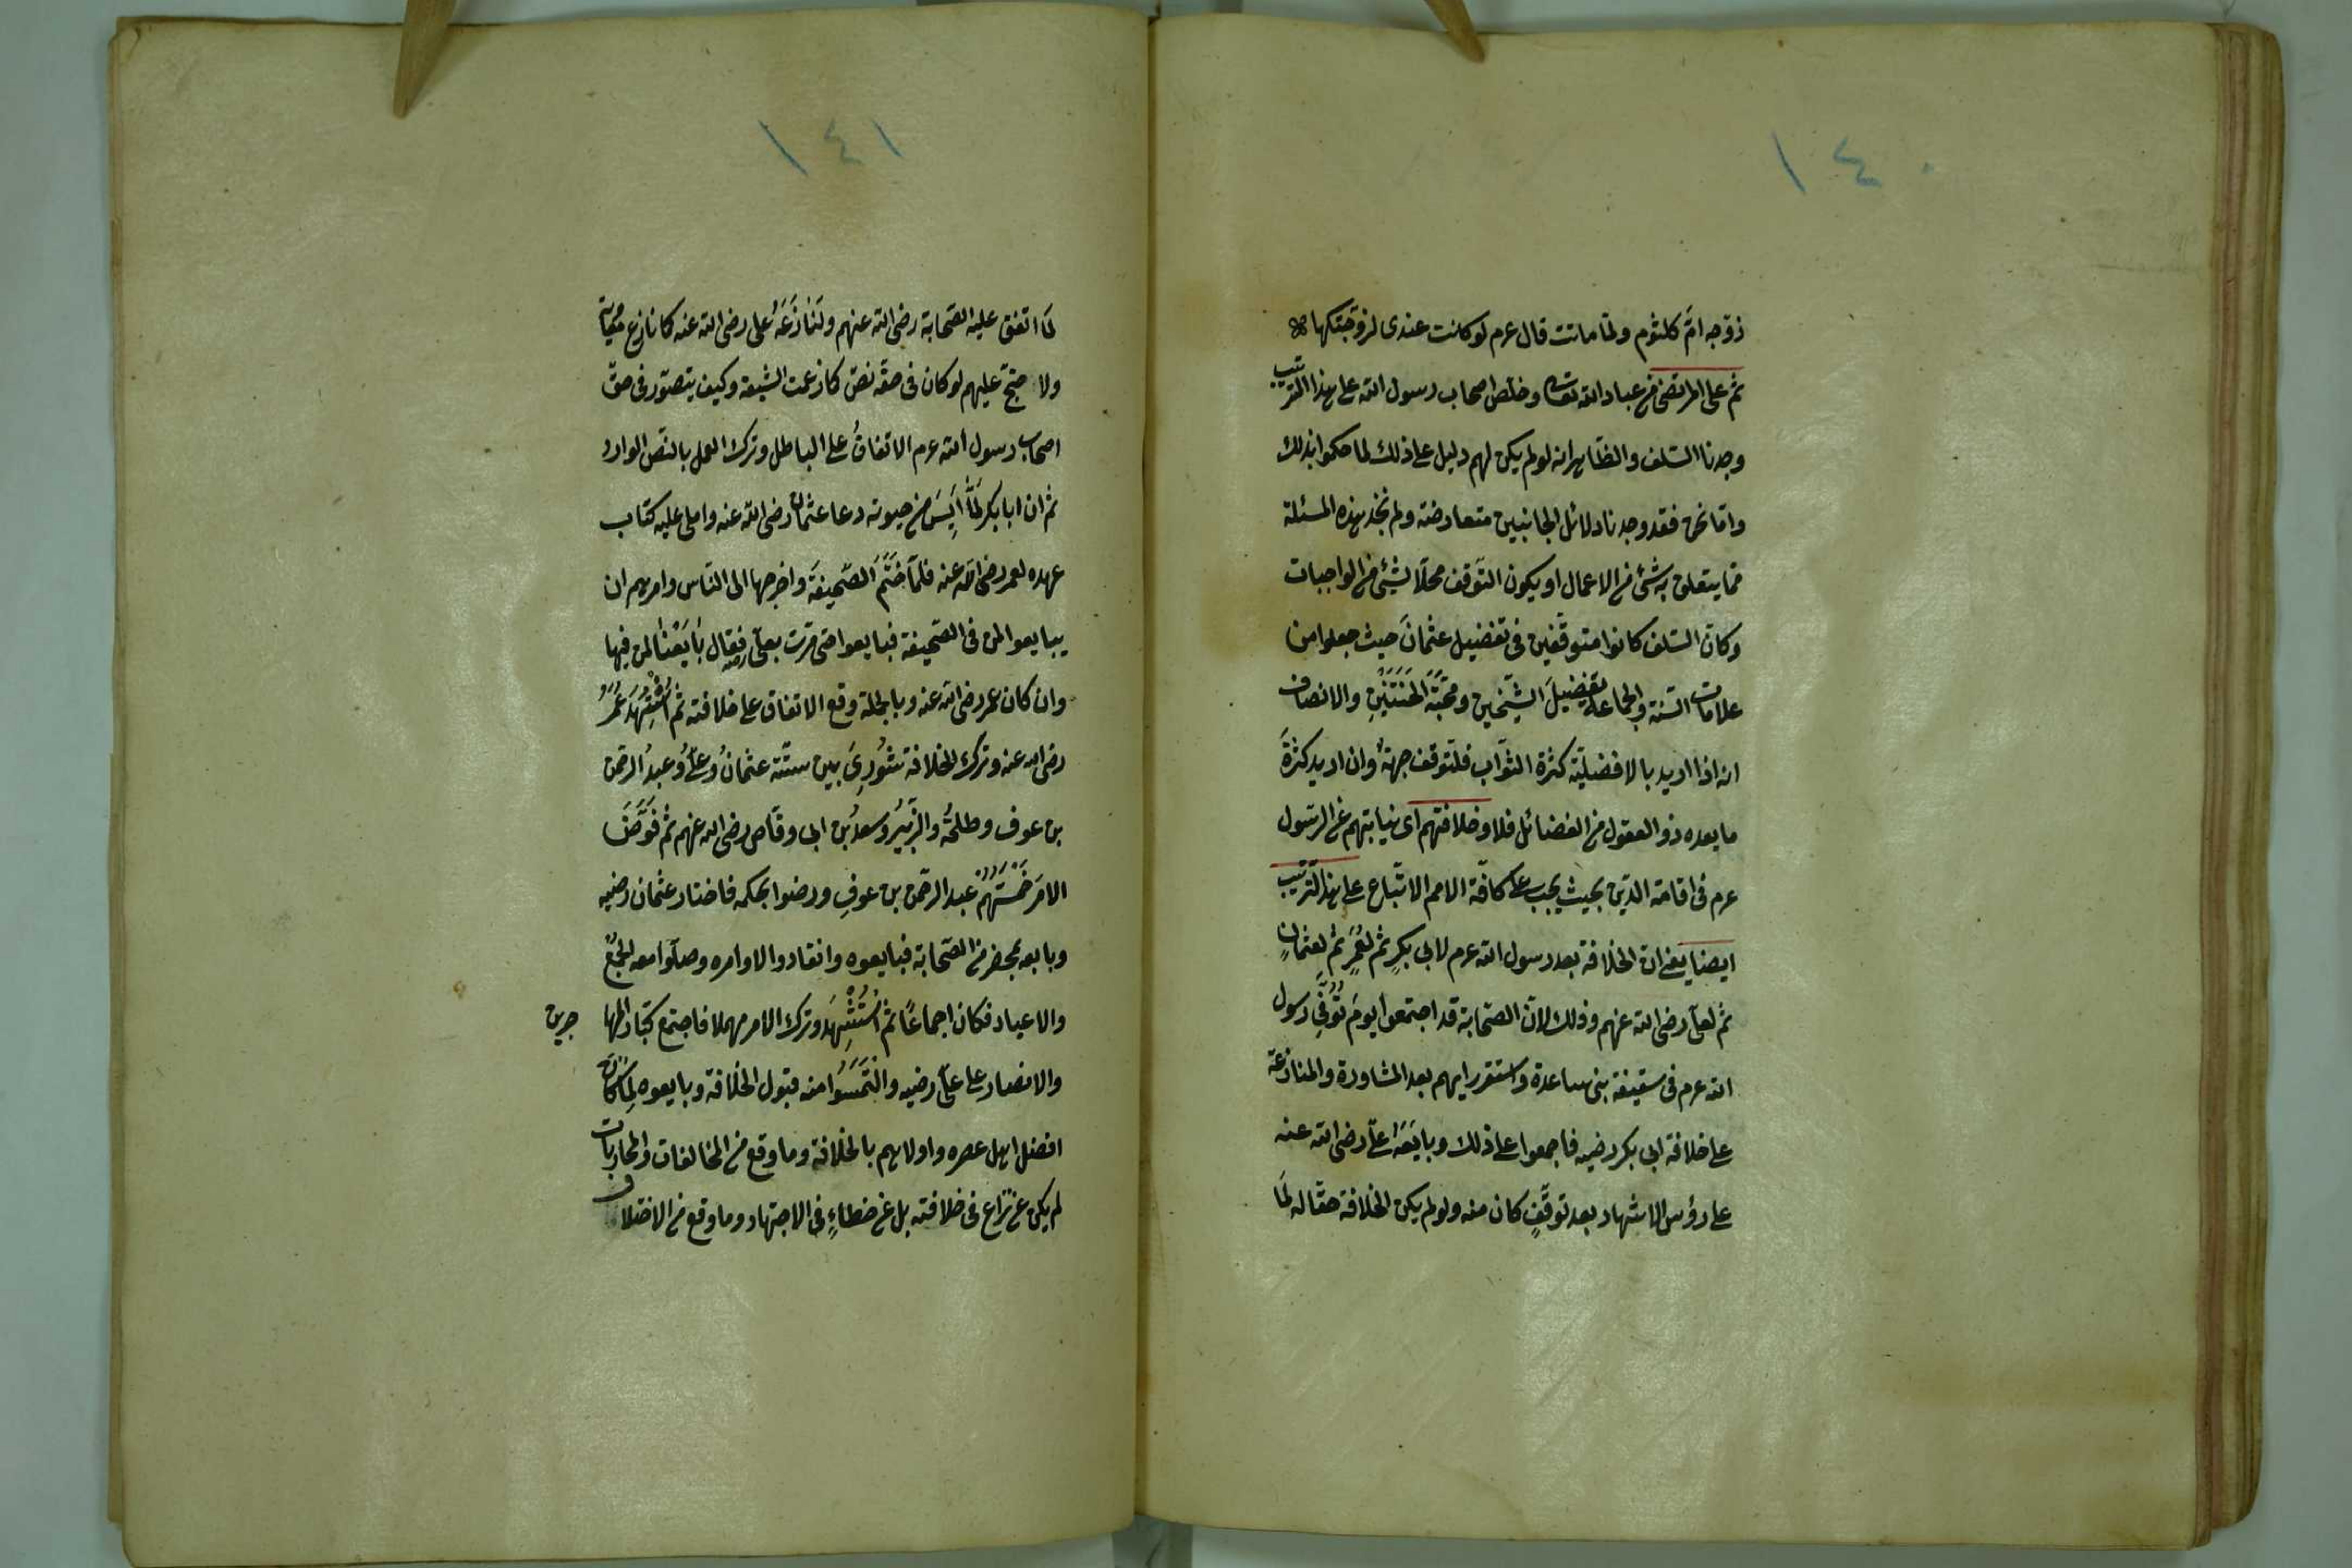 ١٤٠
زوّجه امّ كلثوم ولمّا ماتت قال عرم لو كانت عندى لزوّجتكها
ثم على المرتضى من عباد الله تعالى وخلّص اصحاب رسول الله على هذا الترتيب
وجدنا السّلف والظّاهر انه لو لم يكن لهم دليل على ذلك لما حكموا بذلك
وامّا نحن فقد وجدنا دلائل الجانبين متعارضة ولم نجد هذه المسئلة
ممّا يتعلق به شئ من الاعمال او يكون التّوقف محلّا بشئ من الواجبات
وكانّ السّلف كانوا متوقّفين فى تفضيل عثمانَ حيث جعلوا من
علامات السّنة والجماعة تفضيلَ الشّيخين ومحبّةَ الخَتَنَيْنِ والانصاف
انه اذا اريد بالافضليّة كثرة الثّواب فلتّوقف جهةٌ وان اريد كثرةَ
ما يعده ذو العقول من الفضائل فلا وخلافتهم اى نيابتهم عن الرّسول
عرم فى اقامة الدّين بحيث يجب على كافّة الامم الاتّباع على هذا الترتيب
ايضا يعنى انّ الخلافة بعد رسول الله عرم لابى بكرٍ ثم لعُمَرٍ ثمّ لعثمانٍ
ثم لعلىّ رضى الله عنهم وذلك لانّ الصّحابة قد اجتمعوا يومَ تُوُفِّى رسول
الله عرم فى سقيفة بنى ساعدة واستقر رايهم بعد المشاورة والمنازعة
على خلافة ابى بكر رضيه فاجمعوا على ذلك وبايَعَهُ علىّ رضى الله عنه
على رؤس الاشهاد بعد توقّفٍ كان منه ولو لم يكن الخلافة حقّا له لمَا
١٤١
لمَا اتفق عليه الصّحابة رضى الله عنهم ولَنَازَعَهُ على رضى الله عنه كما نازع معٰوية
ولاحتجّ عليهم لو كان فى حقّه نصّ كما زعمت الشّيعة وكيف يتصوّر فى حقّ
اصحاب رسول الله عرم الاتفاقُ على الباطل وترك العمل بالنّص الوارد
ثم ان ابا بكر لمّا اَيِسَ من حيوته دعا عثمان رضى الله عنه واملى عليه كتاب
عهده لعمر رضى الله عنه فلمّا خَتَمَ الصّحيفةَ واخرجها الى النّاس وامرهم ان
يبايعوا لمن فى الصّحيفة فبايعوا حتى مرّت بعلىّ رضيه فقال بَايَعْنٰا لمن فيها
وان كان عمر رضى الله عنه وبالجملة وقع الاتفاق على خلافته ثم اُسْتُشْهِدَ عُمَرُ
رضى الله عنه وترك الخلافة شُورِىَ بين ستّة عثمانُ وعلىٌّ وعبدُ الرحمن
بن عوف وطلحةُ والزّبَيْرُ وسعدُ بن ابى وقاص رضى الله عنهم ثم فَوَّضَ
الامرَ خَمْسَتُهُمْ عبد الرحمن بن عوفٍ ورضوا بحكمه فاختار عثمان رضيه
وبايعه بمحضر من الصّحابة فبايعوه وانقادوا لاوامره وصلّوا معه الجُمَعَ
والاعياد فكان اجماعًا ثم اُسْتُشْهِدَ وترك الامر مهملا فاجتمع كبار المها جرين
والانصار على علىّ رضيه والتَمَسُوا منه قبول الخلافة وبايعوه لِمَا كَانَ
افضل اهل عصره واولاهم بالخلافة وما وقع من المخالفات والمحاربات
لم يكن عن نزاع فى خلافته بل عن خطاءٍ فى الاجتهاد وما وقع من الاختلاف